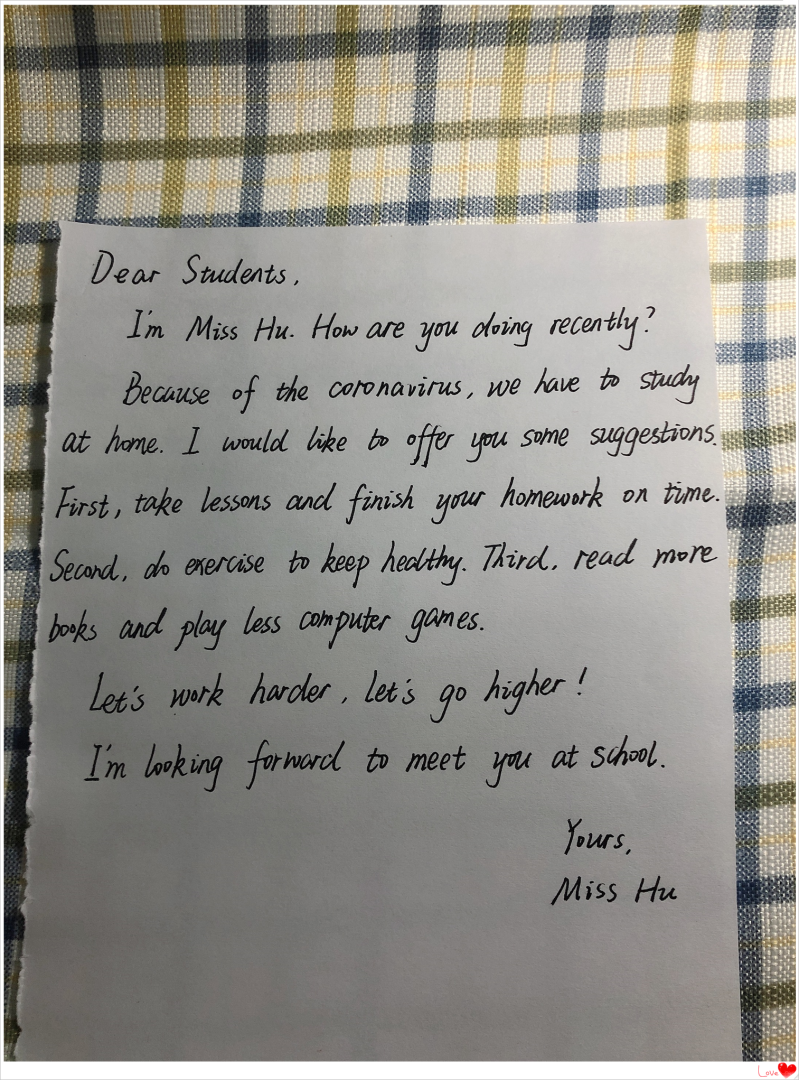 Dear Students,
I'm Miss Hu. How are you doing recently?
Because of the coronavirus, we have to study
at home. I would like to offer you some suggestions.
First, take lessons and finish your homework on time.
Second, do exercise to keep healthy. Third, read more
books and play less computer games.
Let's work harder, let's go higher!
I'm looking forward to meet you at school.
Yours,
Miss Hu
Love